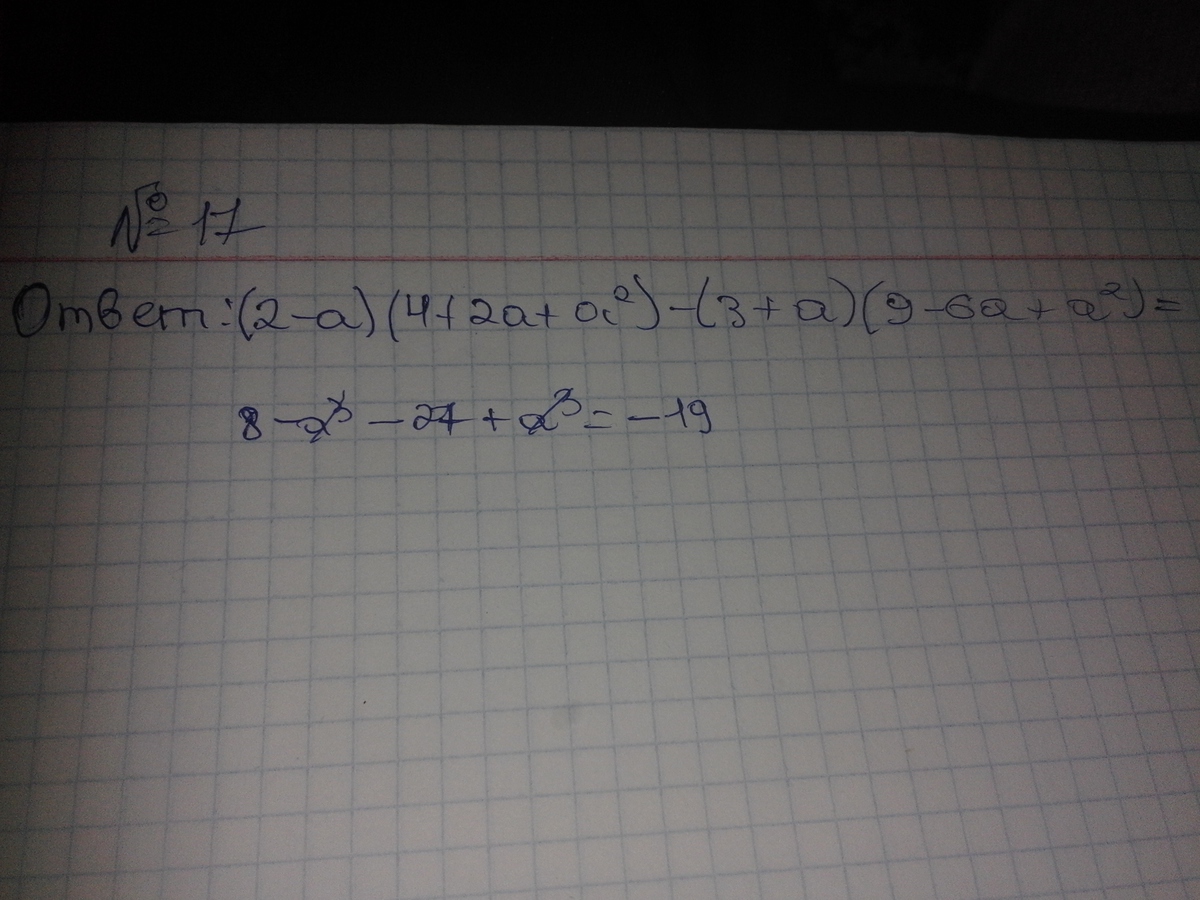 № 17
Ответ: (2-a)(4+2a+a²)-(3+a)(9-6a+a²)=
8-a³-27+a³=-19